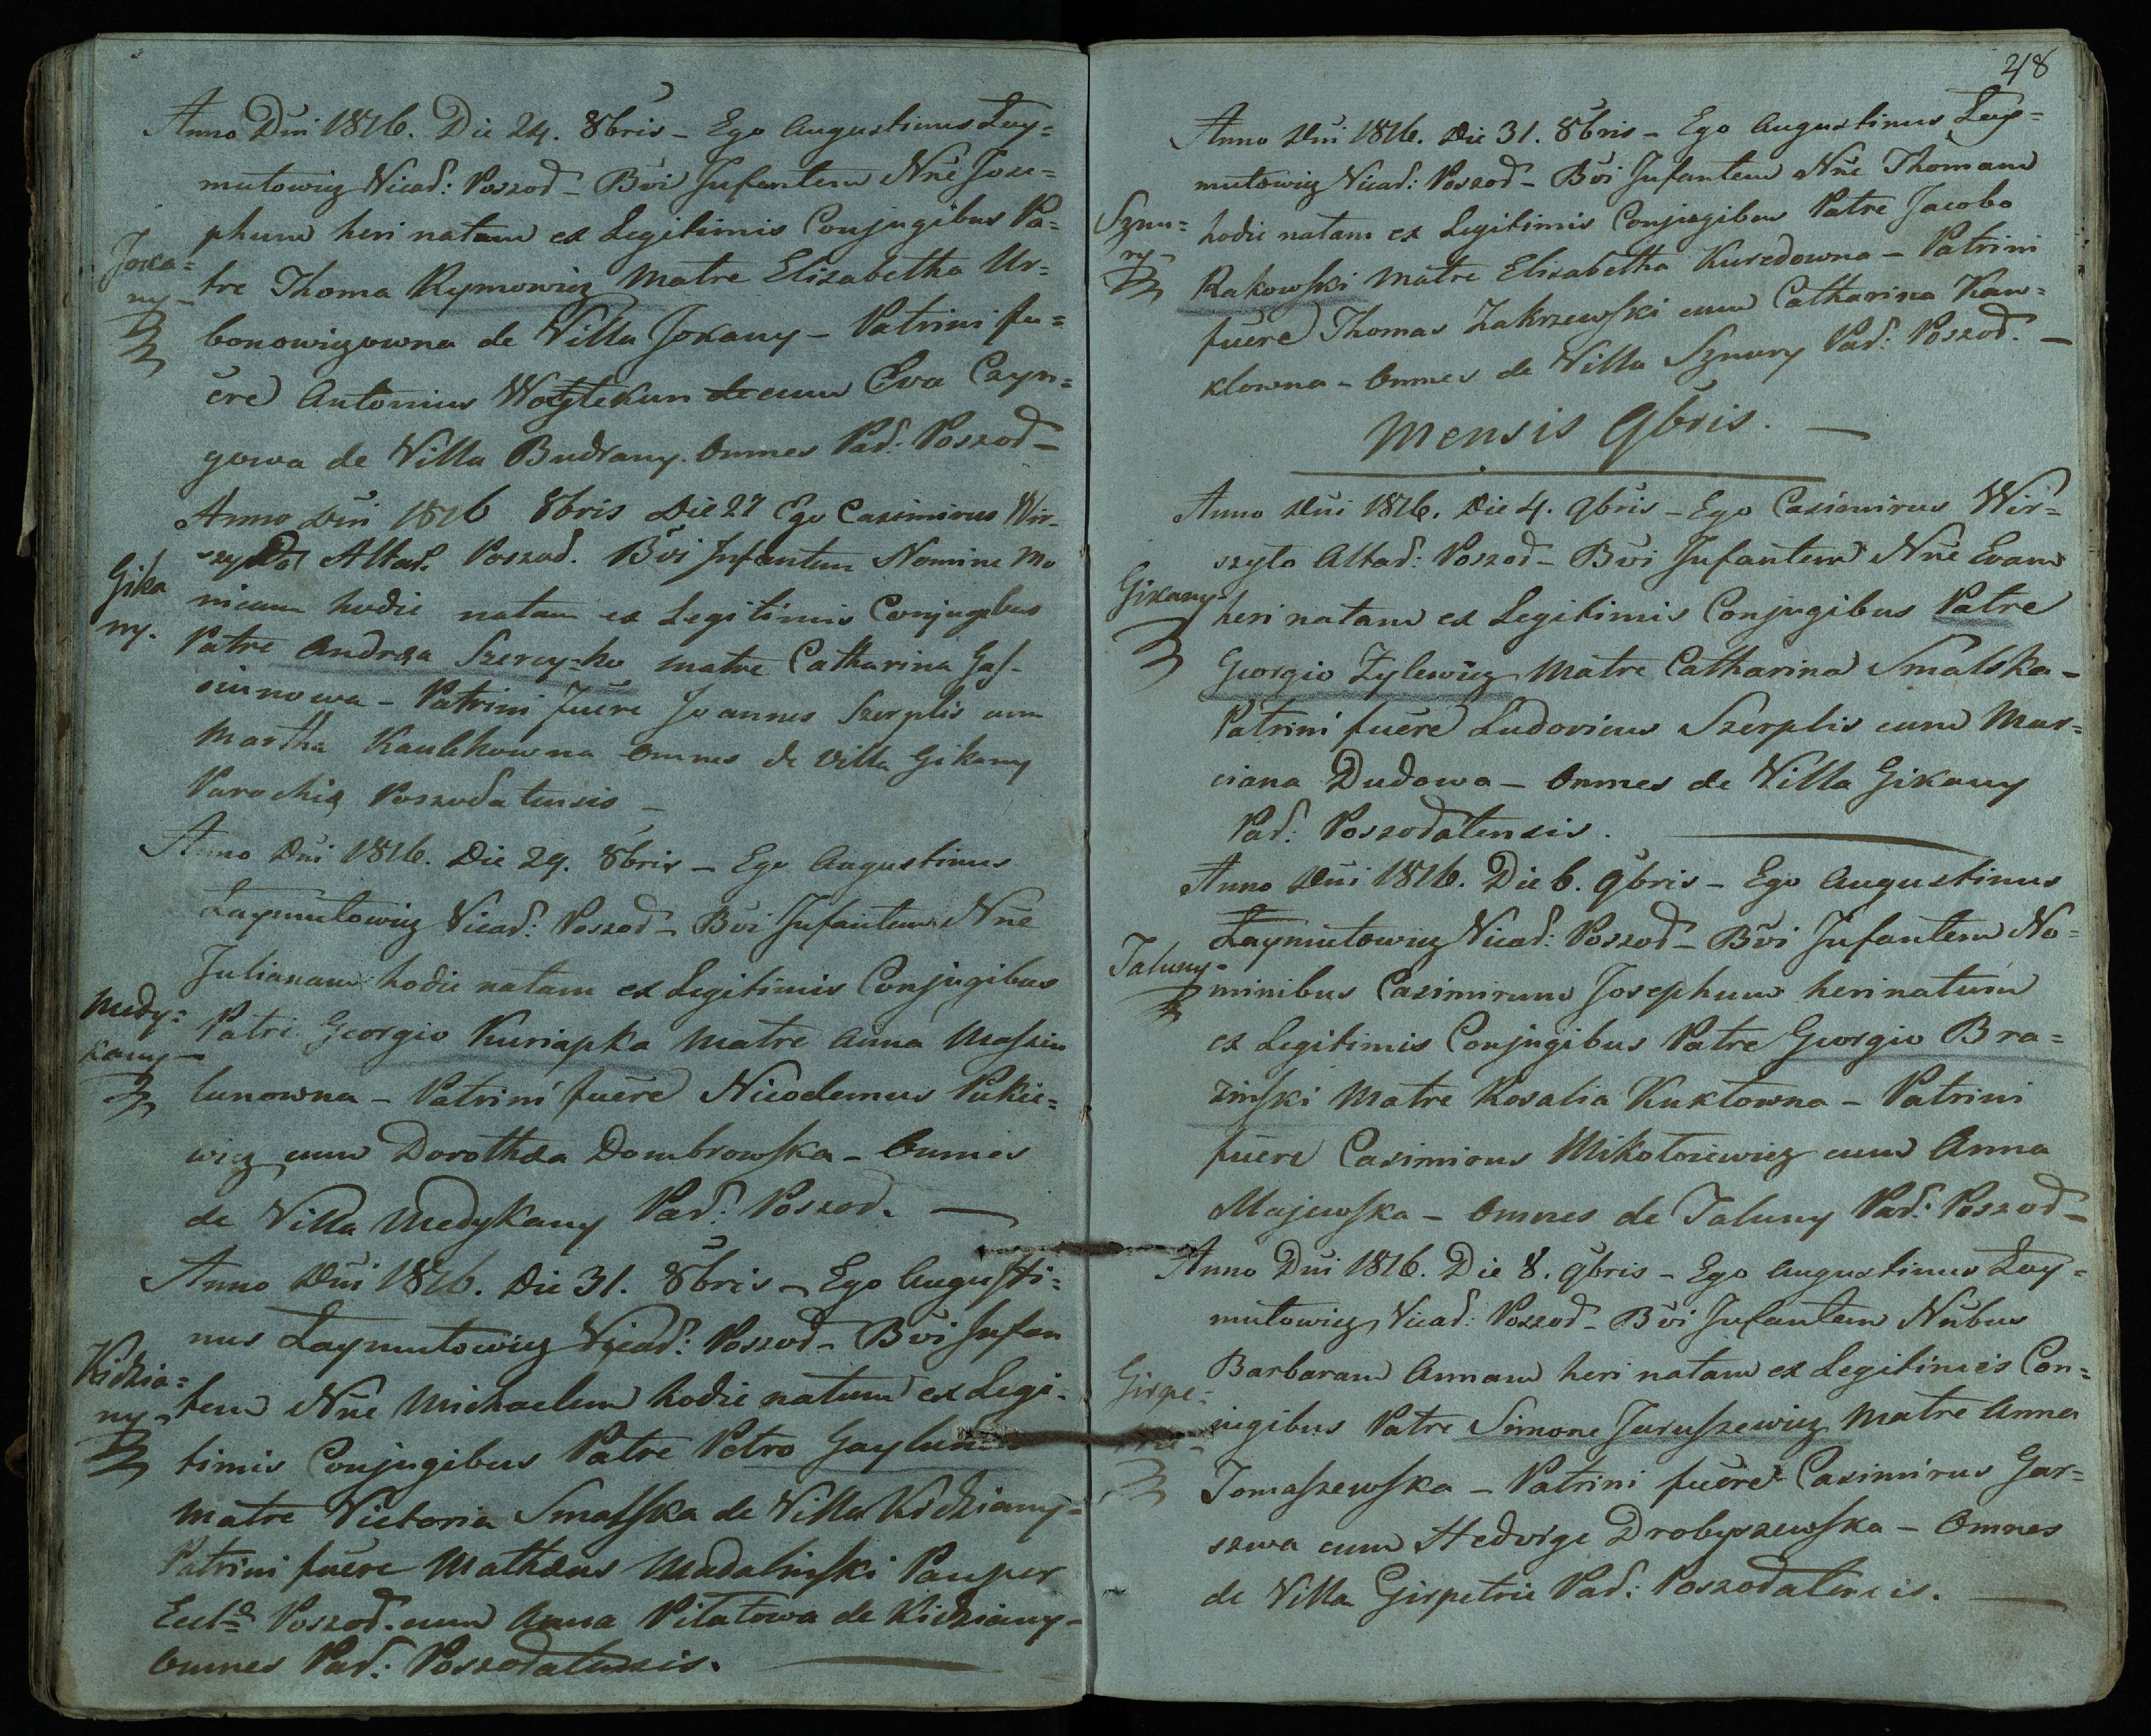 Anno Dni 1816. Die 24. 8bris – Ego Augustinus Lay=
mutowicz Vicad: Poszod – Bvi Infantem Nñe Jose=
phum heri natum ex Legitimis Conjugibus Pa=
Joxa=
ny –
tre Thoma Rymowicz Matre Elisabetha Ur=
bonowiczowna de Villa Joxany – Patrini fu=
ere Antonius Woytekun cum Eva Cayn=
gowa de Villa Budrany. Omnes Pad: Poszod –
Anno Dni 1816 8bris Die 27 Ego Casimirus Wir-
szyllo Altad. Poszod. Bvi Infantem Nomine Mo
Gika
ny.
nicam hodie natam ex Legitimis Conjugibus
Patre Andrea Szercy=ko Matre Catharina Gas-
siunowa – Patrini fuere Joannes Szerplis cum
Martha Kaulekowna Omnes de Villa Gikany
Parochiæ Poszodatensis –
Anno Dni 1816. Die 29. 8bris – Ego Augustinus
Laymutowicz Vicad: Poszod – Bvi Infantem Nñe
Julianam hodie natam ex Legitimis Conjugibus
Medy=
kany –
Patre Georgio Kuriapka Matre Anna Massiu
lunowna – Patrini fuere Nicodemus Pukie=
wicz cum Dorothea Dombrowska – Omnes
de Villa Medykany Pad: Poszod. —
Anno Dni 1816. Die 31. 8bris – Ego Augusti=
nus Laymutowicz Vicad: Poszod – Bvi Infan
Kidzia=
ny –
tem Nñe Michaelem hodie natum ex Legi=
timis Conjugibus Patre Petro Gaylun
Matre Victoria Smalska de Villa Kidziany –
Patrini fuere Mathæus Madalinski Pauper
Ecclæ Poszod. cum Anna Pilatowa de Kidziany –
Omnes Pad: Poszodatensis. —
248
Anno Dni 1816. Die 31. 8bris – Ego Augustinus Lay=
mutowicz Vicad: Poszod – Bvi Infantem Nñe Thomam
Sznu=
ry –
hodie natam ex Legitimis Conjugibus Patre Jacobo
Rakowski Matre Elisabetha Kuredowna – Patrini
fuere Thomas Zakrzewski cum Catharina Kaw=
klowna – Omnes de Villa Sznury Pad: Poszod. —
Mensis 9bris. —
Anno Dni 1816. Die 4. 9bris – Ego Casimirus Wir=
szyło Altad: Poszod – Bvi Infantem Nñe Evam
Gikany –
heri natam ex Legitimis Conjugibus Patre
Georgio Zylewicz Matre Catharina Smalska –
Patrini fuere Ludovicus Szerplis cum Mar=
ciana Dudowa – Omnes de Villa Gikany
Pad: Poszodatensis. —
Anno Dni 1816. Die 6. 9bris – Ego Augustinus
Laymutowicz Vicad: Poszod – Bvi Infantem No=
Taluny –
minibus Casimirum Josephum heri natum
ex Legitimis Conjugibus Patre Georgio Bra=
zinski Matre Rosalia Kukłowna – Patrini
fuere Casimirus Mikołoiewicz cum Anna
Majewska – Omnes de Taluny Pad: Poszod –
Anno Dni 1816. Die 8. 9bris – Ego Augustinus Lay=
mutowicz Vicad: Poszod – Bvi Infantem Nñbus
Girpe=
trie –
Barbaram Annam heri natam ex Legitimis Con=
jugibus Patre Simone Juruszewicz Matre Anna
Tomaszewska – Patrini fuere Casimirus Gar=
szwa cum Hedvige Drobyszewska – Omnes
de Villa Girpetrie Pad: Poszodatensis. —